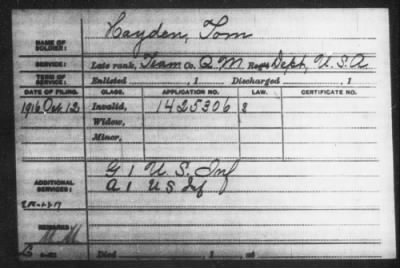 NAME OF SOLDIER: Hayden, Tom
SERVICE: Late rank, Team Co. Q.M. Reg't Dept, U.S.A.
TERM OF SERVICE: Enlisted , 1 Discharged , 1
DATE OF FILING. CLASS. APPLICATION NO. LAW. CERTIFICATE NO.
1916 Oct. 12, Invalid, 1425306
Widow,
Minor,
ADDITIONAL SERVICES: G 1 U.S. Inf
A 1 U S Inf
REMARKS:
Died , 1 , at